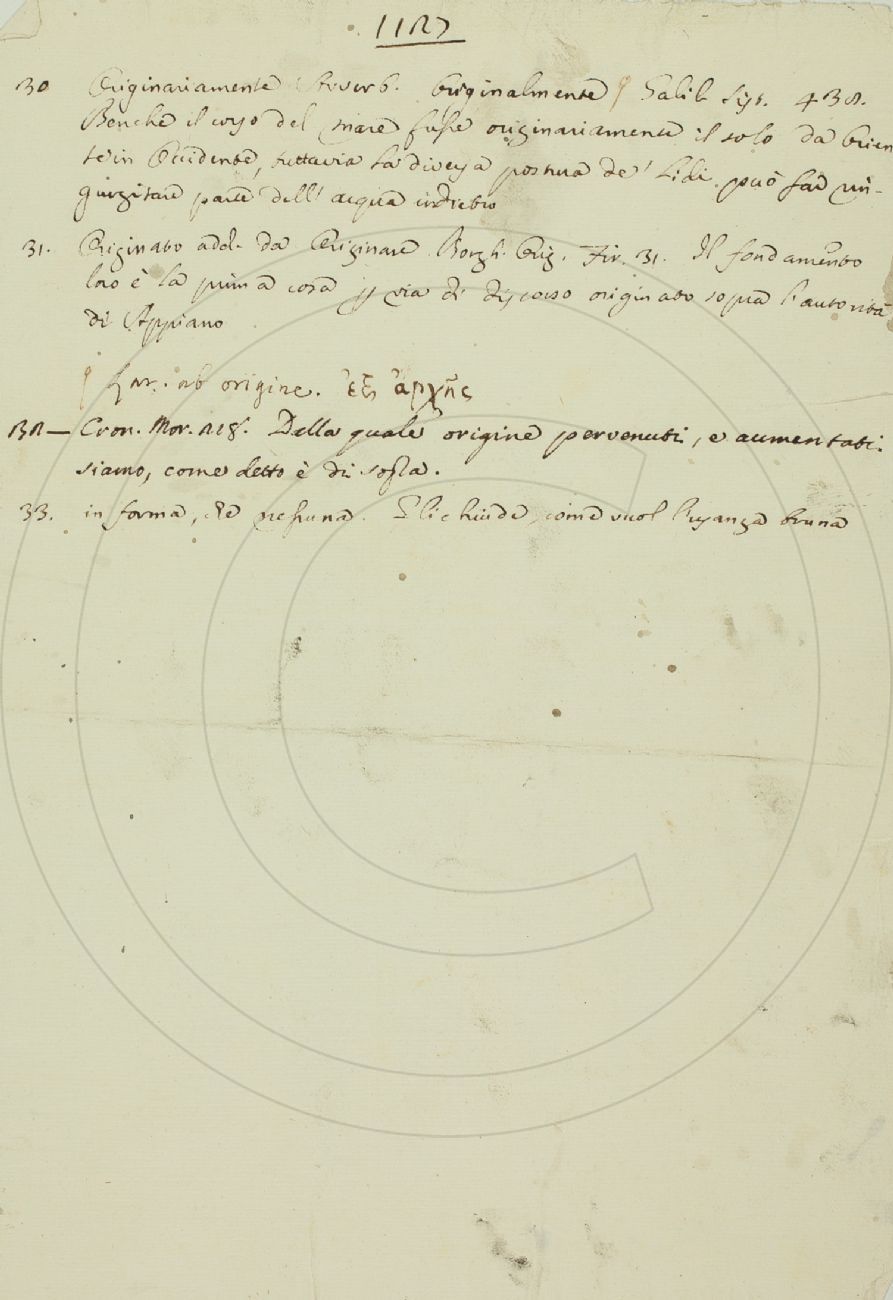 1127
30 Originariamente Avverb. Originalmente ¶ Galil. Sist. 438.
Benchè il corso del mare fusse originariamente il solo da Orien
te in Occidente, tuttavia la diversa postura de' Lidi può far rin-
gurgitare parte dell' acqua indietro
31. Originato add. da Originare Borgh. Orig. Fir. 31. Il fondamento
loro è la prima cosa p via di discorso originato sopra l'autorità
di Appiano
¶ Lat. ab origine. ἐξ ἀρχῆς
32— Cron. Mor. 218. Della quale origine pervenuti, e aumentati
siamo, come detto è di sopra.
33. in forma, che nessuna. Gli chiude, come vuol l'usanza bruna